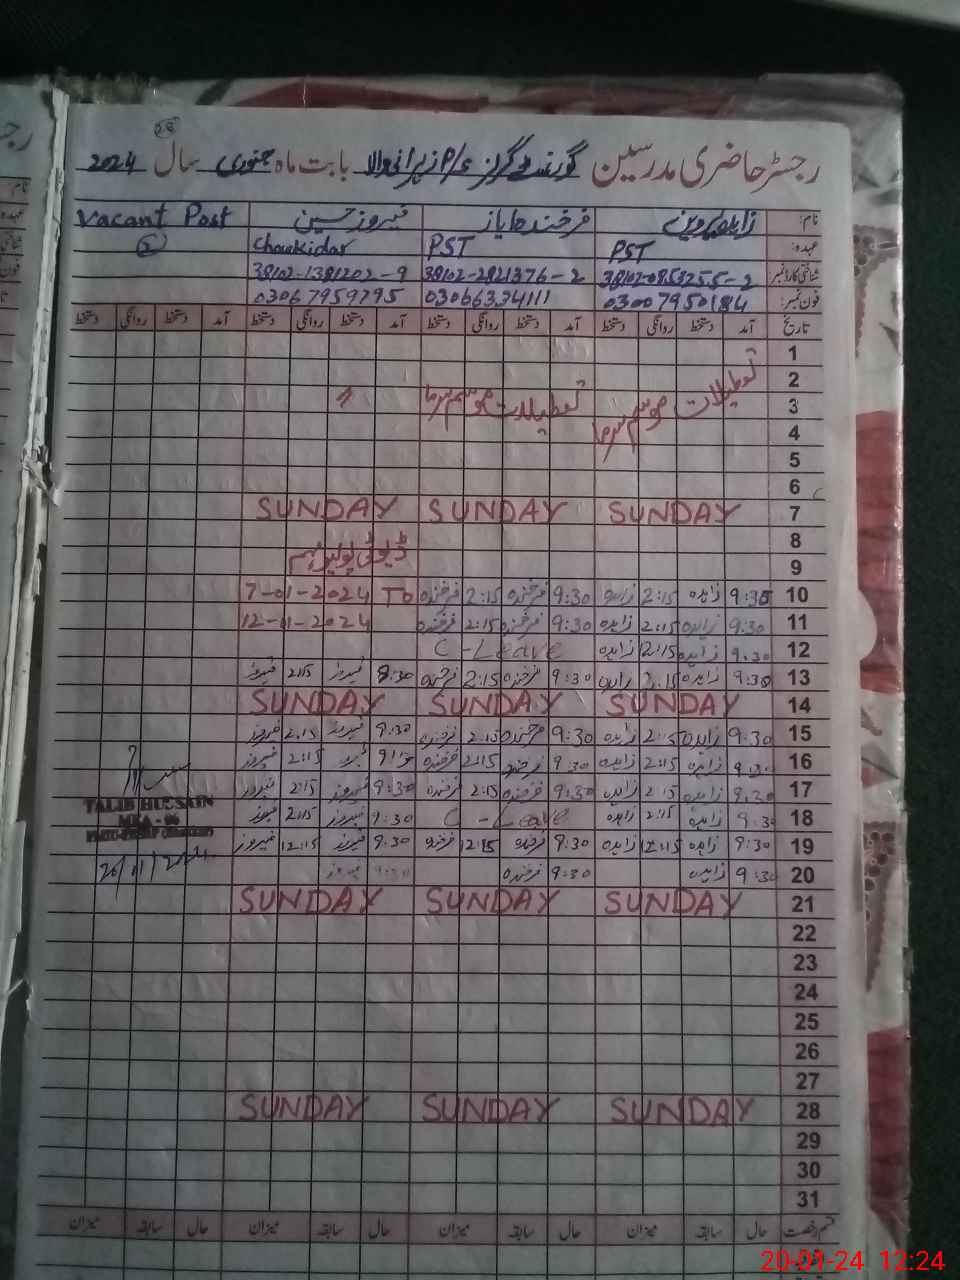 رجسٹر حاضری مدرسین گورنمنٹ گرلز P/S بابت ماہ جنوری سال 2024
نام: زاہدہ پروین فرخندہ ایاز فیروز حسین Vacant Post
عہدہ: PST PST Chowkidar 2
شناختی کارڈ نمبر: 38102-0853255-2 38102-2821376-2 38102-1381202-9
فون نمبر: 03007950184 03066334111 03067959795
تاریخ آمد دستخط روانگی دستخط آمد دستخط روانگی دستخط آمد دستخط روانگی دستخط آمد دستخط روانگی دستخط
1
2 تعطیلات موسم سرما تعطیلات موسم سرما
3
4
5
6
7 SUNDAY SUNDAY SUNDAY
8
9 ڈیوٹی پولیو مہم
10 9:30 زاہدہ 2:15 زاہدہ 9:30 فرخندہ 2:15 فرخندہ 7-01-2024 To
11 9:30 زاہدہ 2:15 زاہدہ 9:30 فرخندہ 2:15 فرخندہ 12-01-2024
12 9:30 زاہدہ 12:15 زاہدہ C-Leave
13 9:30 زاہدہ 2:15 زاہدہ 9:30 فرخندہ 2:15 فرخندہ 9:30 فیروز 2:15 فیروز
14 SUNDAY SUNDAY SUNDAY
15 9:30 زاہدہ 2:15 زاہدہ 9:30 فرخندہ 2:15 فرخندہ 9:30 فیروز 2:15 فیروز
16 9:30 زاہدہ 2:15 زاہدہ 9:30 فرخندہ 2:15 فرخندہ 2:15 فیروز
17 9:30 زاہدہ 2:15 زاہدہ 9:30 فرخندہ 2:15 فرخندہ 9:30 فیروز 2:15 فیروز
18 9:30 زاہدہ 2:15 زاہدہ C-Leave 9:30 فیروز 2:15 فیروز
19 9:30 زاہدہ 12:15 زاہدہ 9:30 فرخندہ 12:15 فرخندہ 9:30 فیروز 12:15 فیروز
20 9:30 زاہدہ 9:30 فرخندہ فیروز
TALIB HUSSAIN
MEA - 06
20/01/2024
21 SUNDAY SUNDAY SUNDAY
22
23
24
25
26
27
28 SUNDAY SUNDAY SUNDAY
29
30
31
قسم رخصت حال سابقہ میزان حال سابقہ میزان حال سابقہ میزان حال سابقہ میزان
20-01-24 12:24